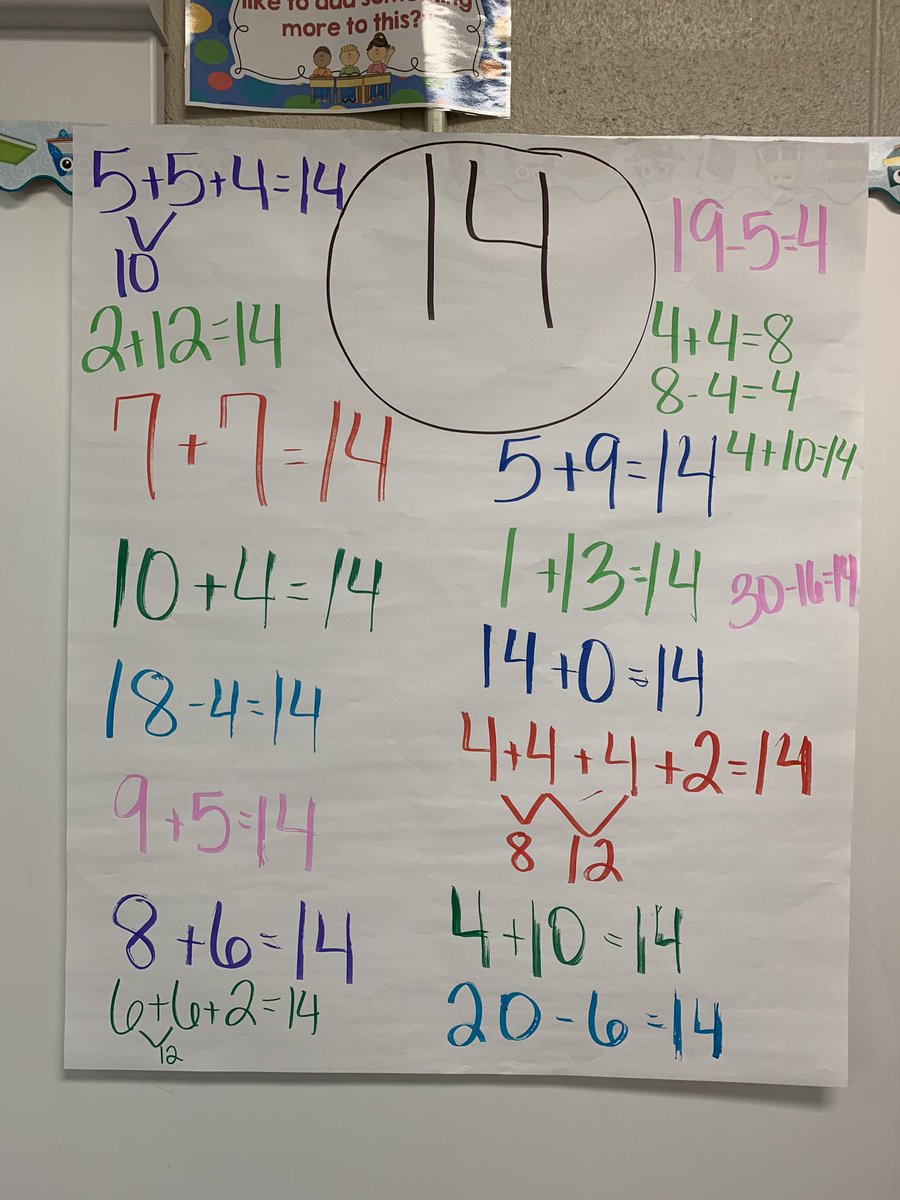 like to add something
more to this?
14
5+5+4=14
10
2+12=14
7+7=14
10+4=14
18-4=14
9+5=14
8+6=14
6+6+2=14
12
19-5=4
4+4=8
8-4=4
4+10=14
5+9=14
1+13=14
30-16=14
14+0=14
4+4+4+2=14
8 12
4+10=14
20-6=14